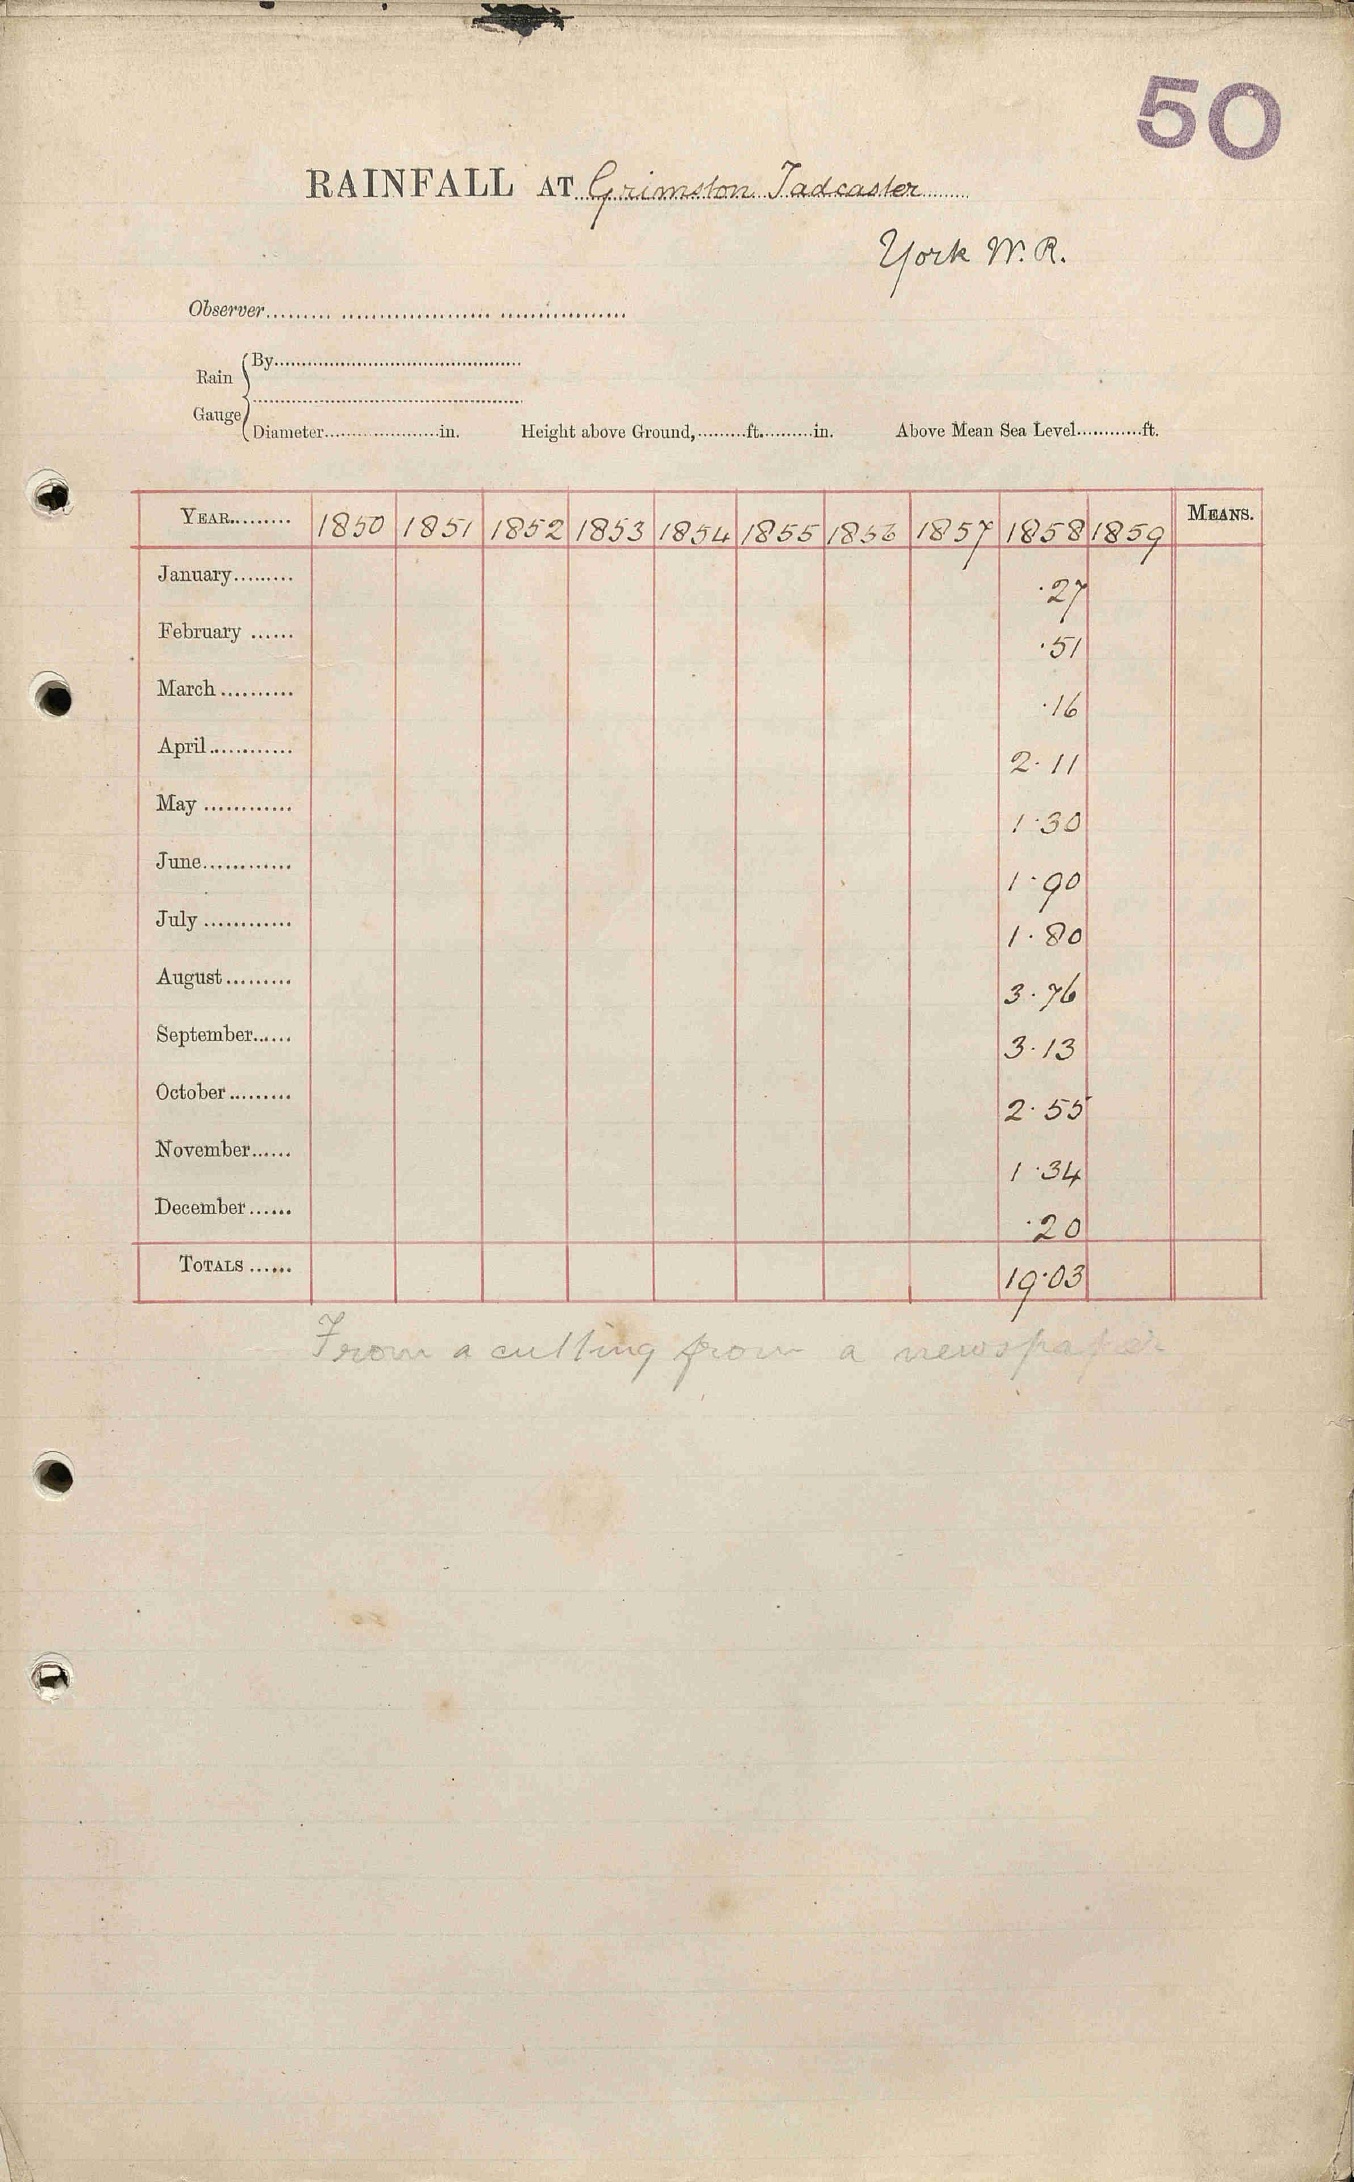 50
RAINFALL AT Grimston Tadcaster
York W.R.
Observer
Rain Gauge
By
Diameter in. Height above Ground, ft. in. Above Mean Sea Level ft.
YEAR 1850 1851 1852 1853 1854 1855 1856 1857 1858 1859 MEANS.
January .27
February .51
March .16
April 2.11
May 1.30
June 1.90
July 1.80
August 3.76
September 3.13
October 2.55
November 1.34
December .20
TOTALS 19.03
From a cutting from a newspaper